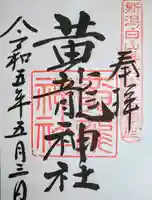 新潟白山
奉拝
黄龍神社
令和五年五月三日